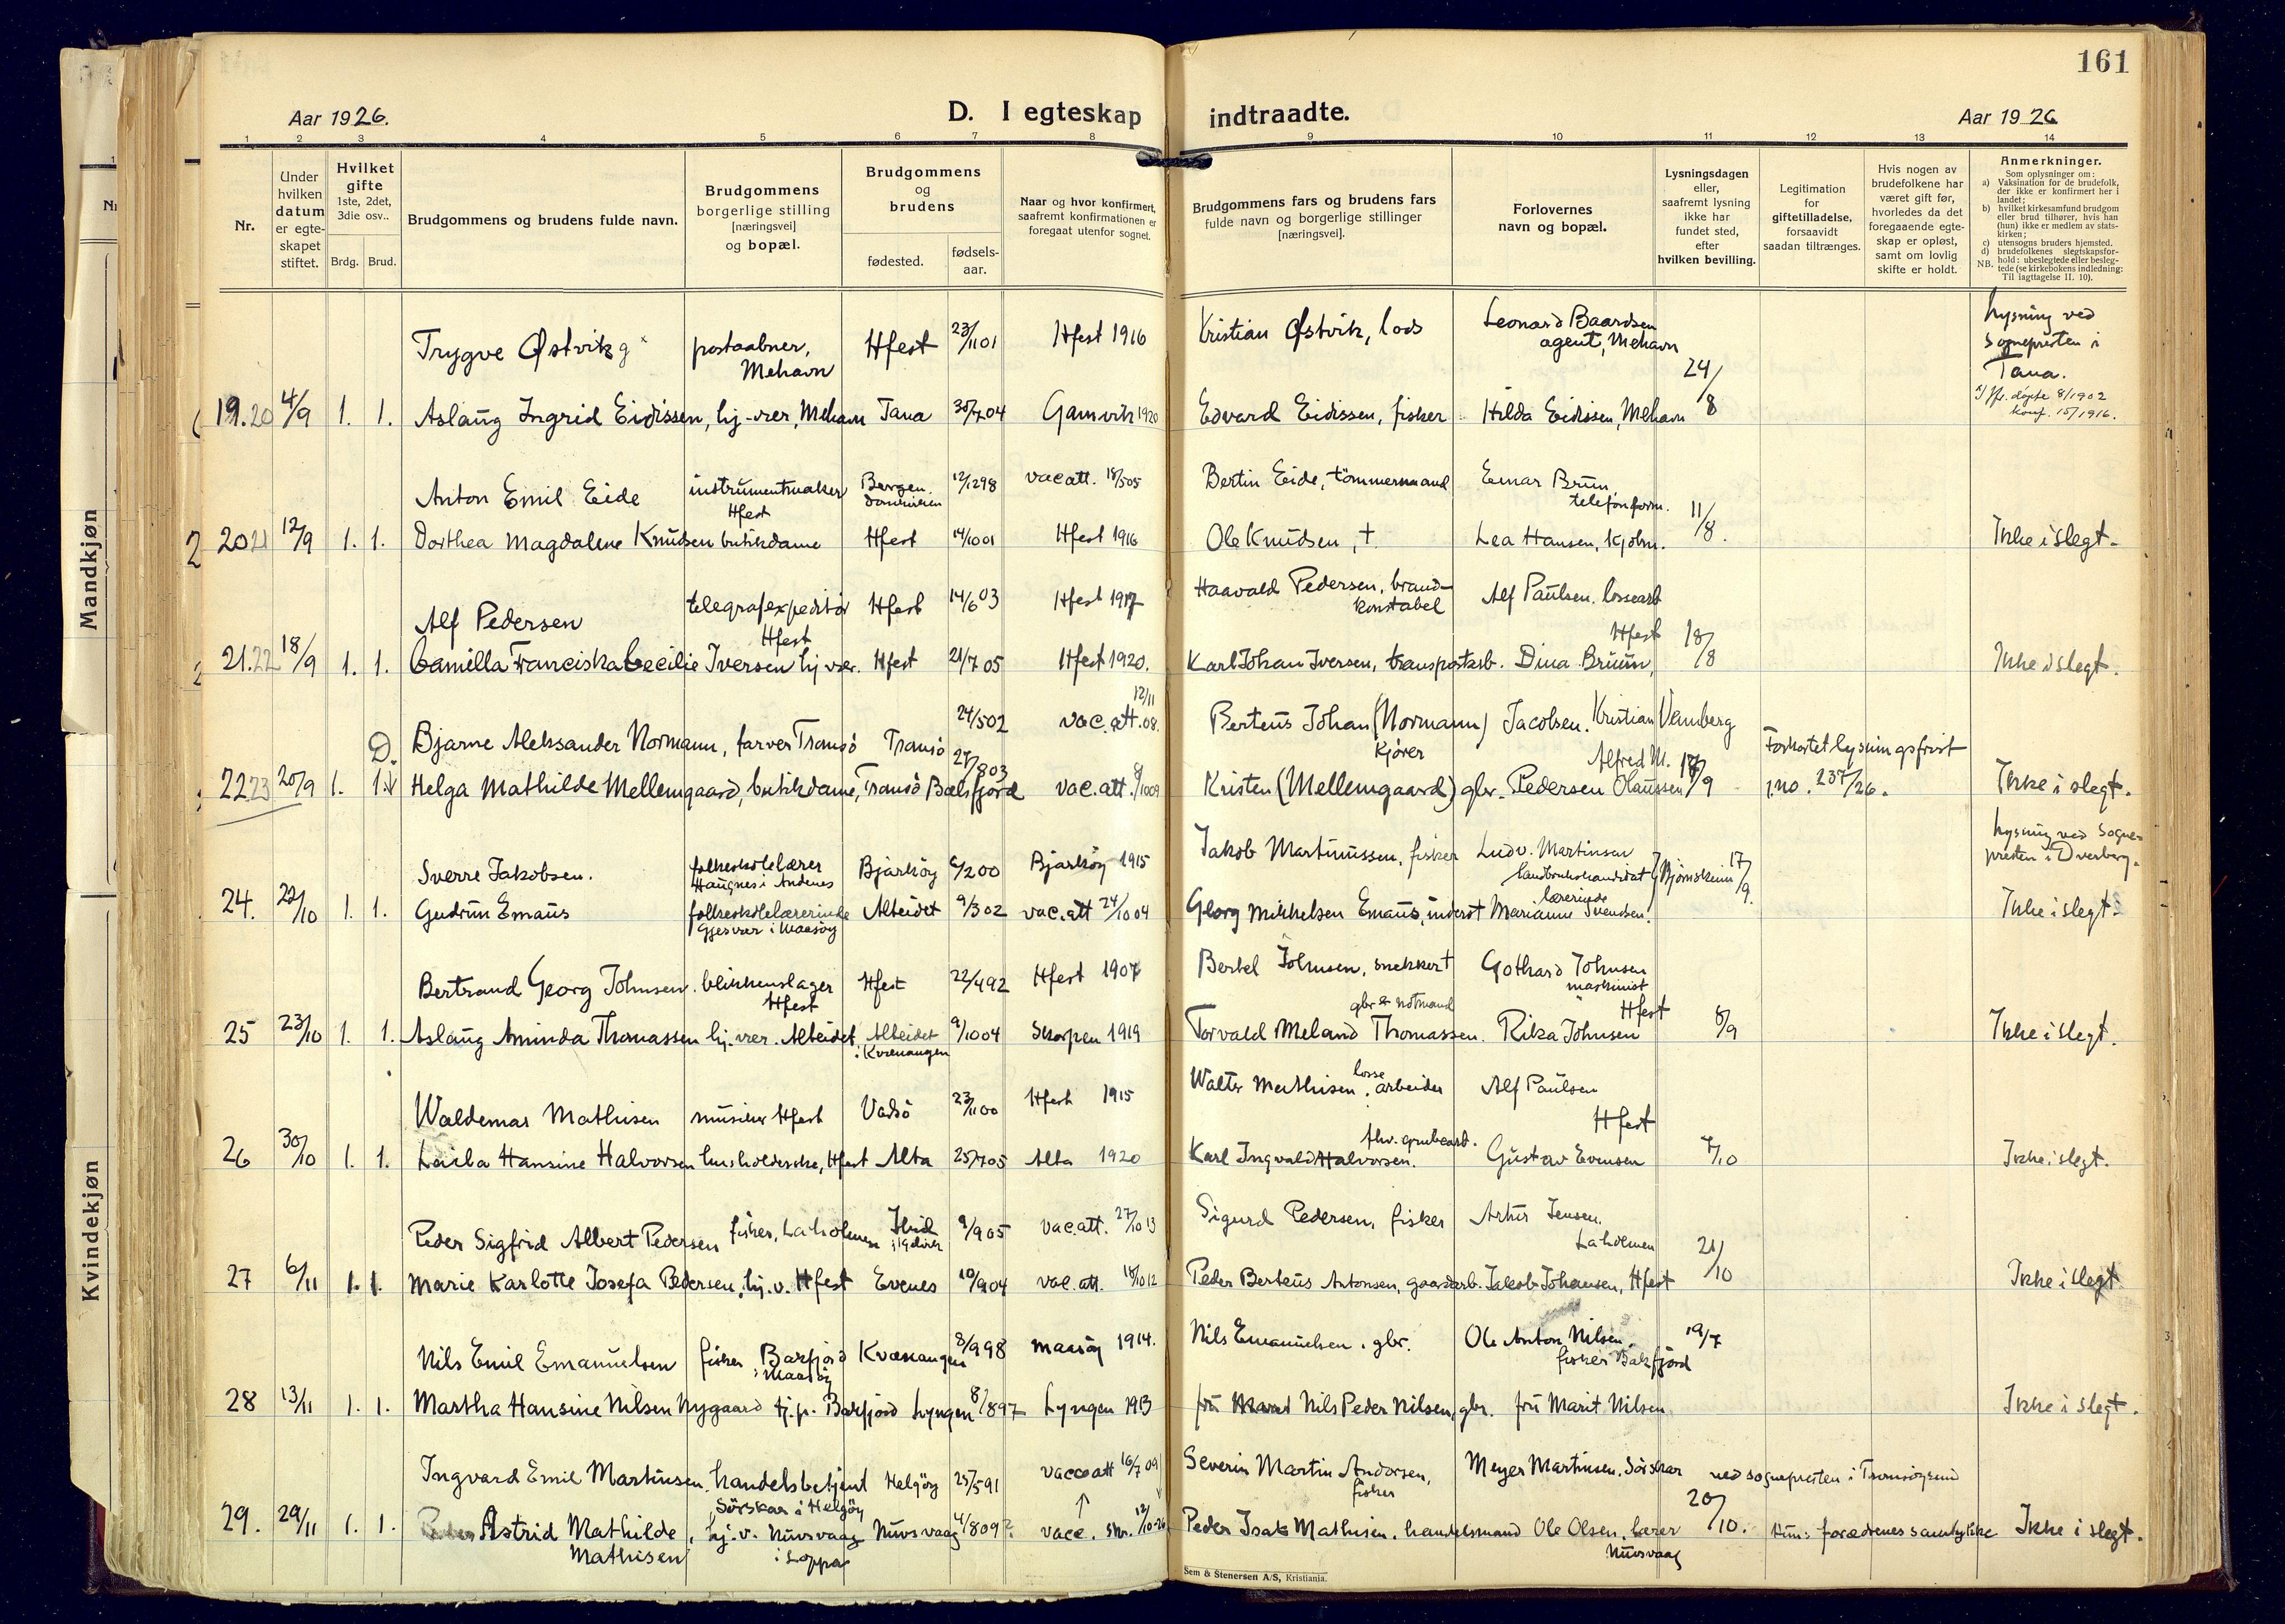 161
Aar 1926.
D. I egteskap indtraadte.
Aar 1926
1 2 3 4 5 6 7 8 9 10 11 12 13 14
Nr.
Under hvilken datum er egteskapet stiftet.
Hvilket gifte 1ste, 2det, 3die osv..
Brdg. Brud.
Brudgommens og brudens fulde navn.
Brudgommens borgerlige stilling [næringsvei] og bopæl.
Brudgommens og brudens
fødested.
fødselsaar.
Naar og hvor konfirmert, saafremt konfirmationen er foregaat utenfor sognet.
Brudgommens fars og brudens fars fulde navn og borgerlige stillinger [næringsvei].
Forlovernes navn og bopæl.
Lysningsdagen eller, saafremt lysning ikke har fundet sted, efter hvilken bevilling.
Legitimation for giftetilladelse, forsaavidt saadan tiltrænges.
Hvis nogen av brudefolkene har været gift før, hvorledes da det foregaaende egteskap er opløst, samt om lovlig skifte er holdt.
Anmerkninger.
Som oplysninger om:
a) Vaksination for de brudefolk, der ikke er konfirmert her i landet;
b) hvilket kirkesamfund brudgom eller brud tilhører, hvis han (hun) ikke er medlem av statskirken;
c) utensogns bruders hjemsted.
d) brudefolkenes slegtskapsforhold: ubeslegtede eller beslegtede (se kirkebokens indledning: Til iagttagelse II. 10).
NB.
Mandkjøn
Kvindekjøn
Trygve Østvik postaabner, Mehavn Hfest 23/11 01 Hfest 1916 Kristian Østvik, lods Leonard Baardsen agent, Mehavn Lysning ved sognepresten i Tana.
19. 20 4/9 1. 1. Aslaug Ingrid Eidissen, hj-vær, Mehavn Tana 30/7 04 Gamvik 1920 Edvard Eidissen, fisker Hilda Eidissen, Mehavn 24/8 døpte 8/1902 konf. 15/1916.
Anton Emil Eide instrumentmaker Hfest Bergen Domkirken 12/12 98 vac att. 18/5 05 Bertin Eide, tömmermand Einar Brun, telefonform.
20 21 12/9 1. 1. Dorthea Magdalene Knudsen butikdame Hfest 14/10 01 Hfest 1916 Ole Knudsen, † Lea Hansen, Kjøbm. 11/8. Ikke i slegt.
Alf Pedersen telegrafexpeditör Hfest Hfest 14/6 03 Hfest 1917 Haavald Pedersen, brandkonstabel Alf Paulsen. lossearb Hfest
21. 22 18/9 1. 1. Camilla Franciska Cecilie Iversen hj vær. Hfest 21/7 05 Hfest 1920. Karl Johan Iversen, transportarb. Dina Bruun, 18/8 Ikke i slegt.
Bjarne Aleksander Normann, farver Tromsö Tromsö 24/5 02 vac. att. 12/11 08. Berteus Johan (Normann) Jacobsen. Kjører Kristian Vemberg
D.
22 23 20/9 1. 1. Helga Mathilde Mellemgaard, butikdame, Tromsö Balsfjord 27/8 03 vac. att. 8/10 09 Kristen (Mellemgaard) gbr. Pedersen Alfred M. Olaussen 17/9 Forkortet lysningsfrist j.no. 237/26. Ikke i slegt.
Sverre Jakobsen. folkeskolelærer Haugnes i Andenes Bjarköy 6/2 00 Bjarköy 1915 Jakob Martinussen, fisker Ludv. Martinsen landbrukskandidat Bjørnskinn Lysning ved sognepresten i Dverberg.
24. 22/10 1. 1. Gudrun Emaus folkeskolelærerinde Gjesvær i Maasöy Alteidet 9/3 02 vac. att 24/10 04 Georg Mikkelsen Emaus, inderst lærerinde Marianne Svendsen. 17/9. Ikke i slegt.
Bertrand Georg Johnsen. blikkenslager Hfest Hfest 22/4 92 Hfest 1907 Bertel Johnsen, snekker † Gothard Johnsen maskinist Hfest
25 23/10 1. 1. Aslaug Aminda Thomassen hj. vær. Alteidet, Alteidet i Kvænangen 9/10 04 Skorpen 1919 Torvald Meland Thomassen. gbr & notmand Rika Johnsen 8/9 Ikke i slegt.
Waldemar Mathisen musiker Hfest Vadsö 23/11 00 Hfest 1915 Walter Mathisen. losse arbeider Alf Paulsen Hfest
26 30/10 1. 1. Laila Hansine Halvorsen husholderske, Hfest Alta 25/7 05 Alta 1920 Karl Ingvald Halvorsen. fhv. grubearb. Gustav Evensen 7/10 Ikke i slegt.
Peder Sigfrid Albert Pedersen fisker, Laholmen 9/9 05 vac. att. 27/10 13 Sigurd Pedersen, fisker Artur Jensen. Laholmen
27 6/11 1. 1. Marie Karlotte Josefa Pedersen, hj. v. Hfest Evenes 10/9 04 vac. att. 18/10 12 Peder Berteus Antonsen, gaardarb. Jakob Johansen, Hfest 21/10 Ikke i slegt
Nils Emil Emanuelsen fisker Barfjord i Maasöy Kvænangen 8/9 98 Maasöy 1914. Nils Emanuelsen. gbr. Ole Anton Nilsen. fisker Bakfjord 19/7
28 13/11 1. 1. Martha Hansine Nilsen Nygaard tj. p. Barfjord Lyngen 8/8 97 Lyngen 1913 fru Nils Peder Nilsen, gbr. fru Marit Nilsen Ikke i slegt.
Ingvard Emil Martinsen. handelsbetjent Sörskar i Helgöy Helgöy 25/5 91 vacc att 16/7 09 Severin Martin Andorsen, fisker Meyer Martinsen. Sörskar ved sognepresten i Tromsöysund
29. 29/11 1. 1. Astrid Mathilde Mathisen, hj. v. Nuvsvaag i Loppa Nuvsvaag 4/8 09 vacc. skr. 12/10-26 Peder Isak Mathisen. handelsmand Ole Olsen, lærer Nuvsvaag 20/10. Hun: forældrenes samtykke Ikke i slegt.
Sem & Stenersen A/S, Kristiania.